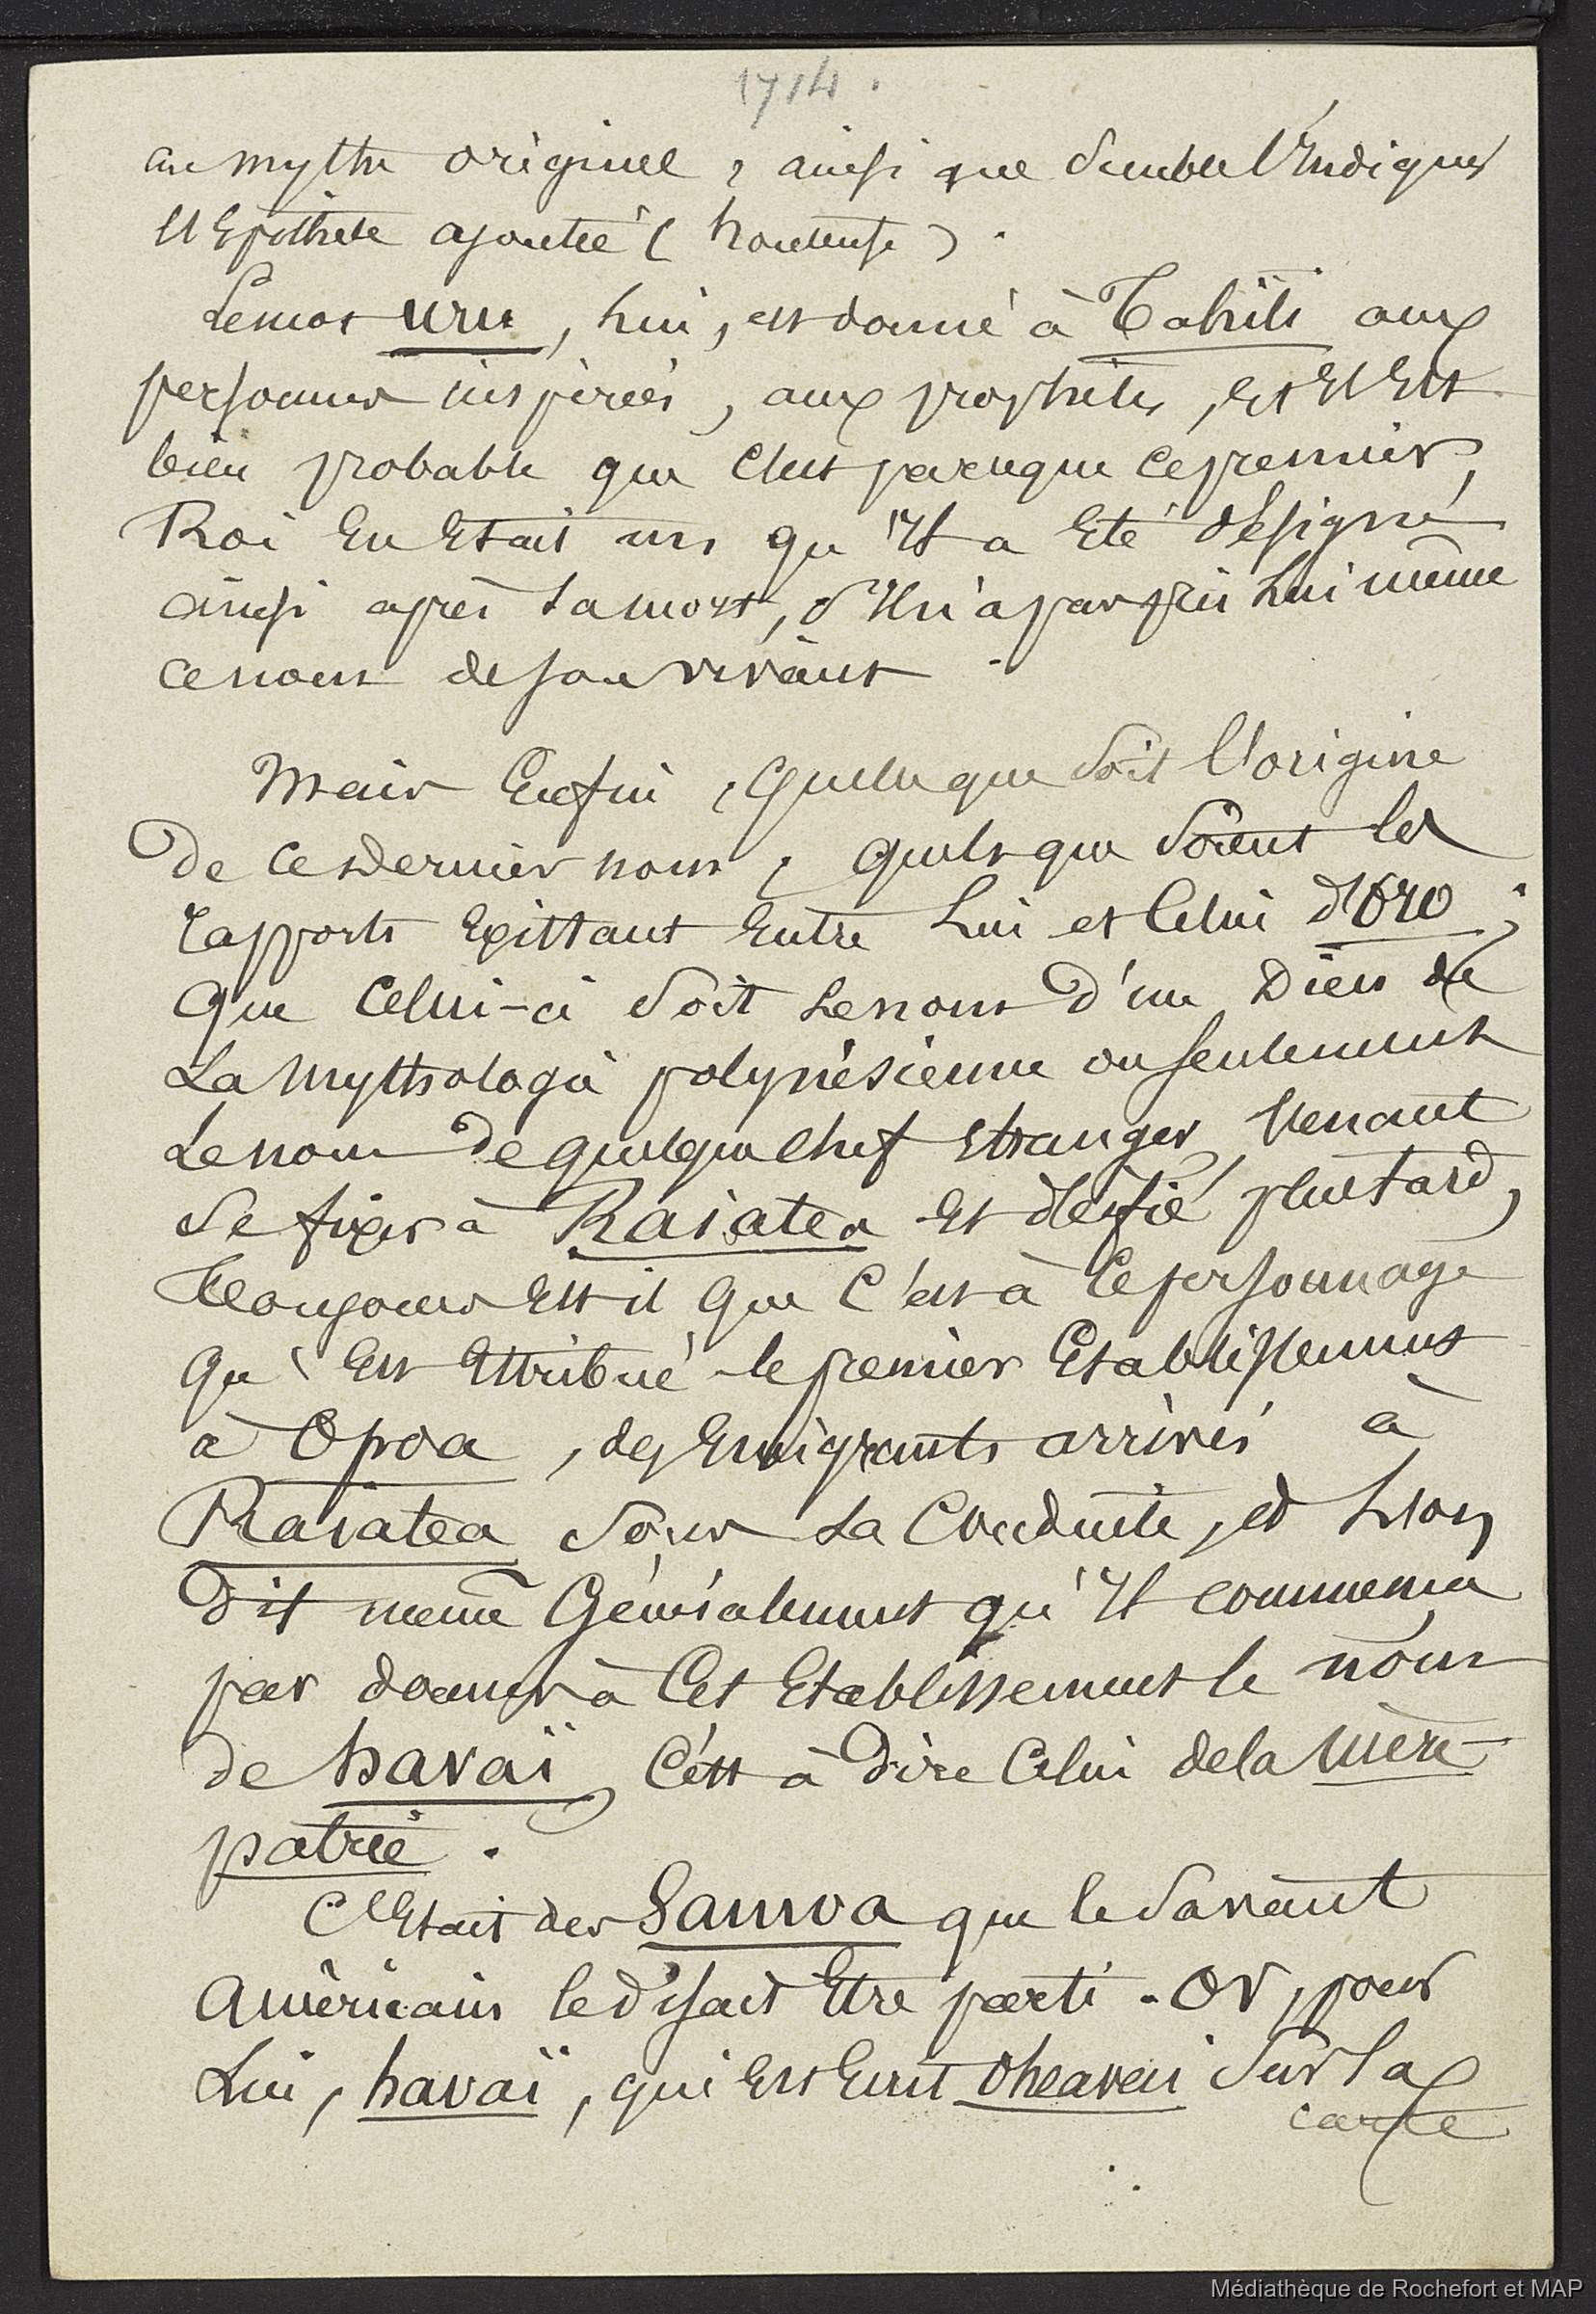 1714.
au mythe originel, ainsi que semble l'indiquer
l'Epithete ajoutée (honteuse).
Le mot uru, lui, est donné à Tahiti aux
personnes inspirées, aux prophètes, et il Est
bien probable que c'est parceque ce premier
Roi En Etait un, qu'Il a Eté désigné
ainsi après sa mort, s'Il n'a pas pris Lui même
ce nom de son vivant.
Mais Enfin, quelle que soit l'origine
de ce dernier nom, quels que soient les
rapports Existant Entre Lui et Celui d'Oro;
que Celui-ci soit Le nom d'un Dieu de
La Mythologie polynésienne ou seulement
Le nom de quelque chef Etranger, Venant
se fixer à Raiatea Et déifié plus tard,
Toujours Est il que C'est à ce personnage
qu'Est attribué le premier Etablissement
à Opoa, des Emigrants arrivés à
Raiatea sous sa Conduite, et L'on
dit même Généralement qu'Il commença
par donner à Cet Etablissement le nom
de havaï, C'est à Dire Celui de la mère
patrie.
C'Etait des Samoa que le Savant
Américain le disait Etre parti. Or, pour
Lui, havaï, qui Est Ecrit Oheavai sur la
carte
Médiathèque de Rochefort et MAP